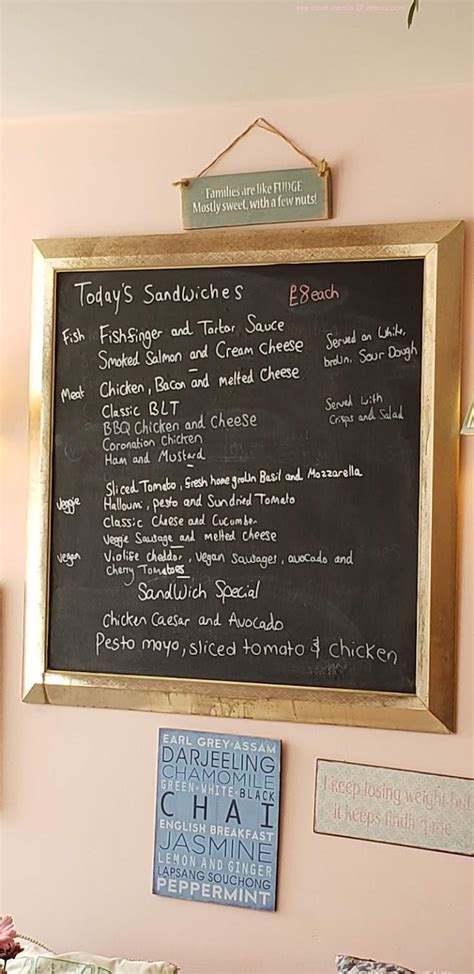 Families are like FUDGE
Mostly sweet, with a few nuts!
Today's Sandwiches £8 each
Fish Fishfinger and Tartar Sauce
Smoked Salmon and Cream Cheese
Served on White,
brown, Sour Dough
Meat Chicken, Bacon and melted Cheese
Classic BLT
BBQ Chicken and Cheese
Coronation Chicken
Ham and Mustard
Served with
Crisps and Salad
Sliced Tomato, fresh home grown Basil and Mozzarella
Veggie Halloumi, pesto and Sundried Tomato
Classic Cheese and Cucumber
Veggie Sausage and melted Cheese
Vegan Violife cheddar, vegan Sausages, avocado and
Cherry Tomatoes
Sandwich Special
Chicken Caesar and Avocado
Pesto mayo, sliced tomato & chicken
EARL GREY·ASSAM
DARJEELING
CHAMOMILE
GREEN·WHITE·BLACK
CHAI
ENGLISH BREAKFAST
JASMINE
LEMON AND GINGER
LAPSANG SOUCHONG
PEPPERMINT
I keep losing weight but
it keeps finding me